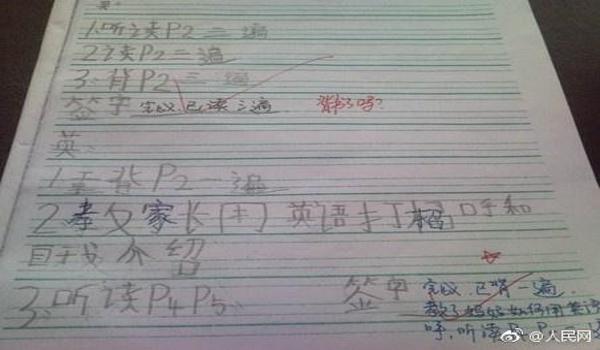 英:
1.听读P2三遍
2.读P2二遍
3.背P2三遍
签字 完成.已读三遍. 背了吗?
英:
1.背P2一遍
2.孝攵家长[丰]英语打招口乎和
自干戈介绍
3.听读P4P5.
签字 完成.已背一遍.
教了妈妈如何用英语
呼,听读
@人民网